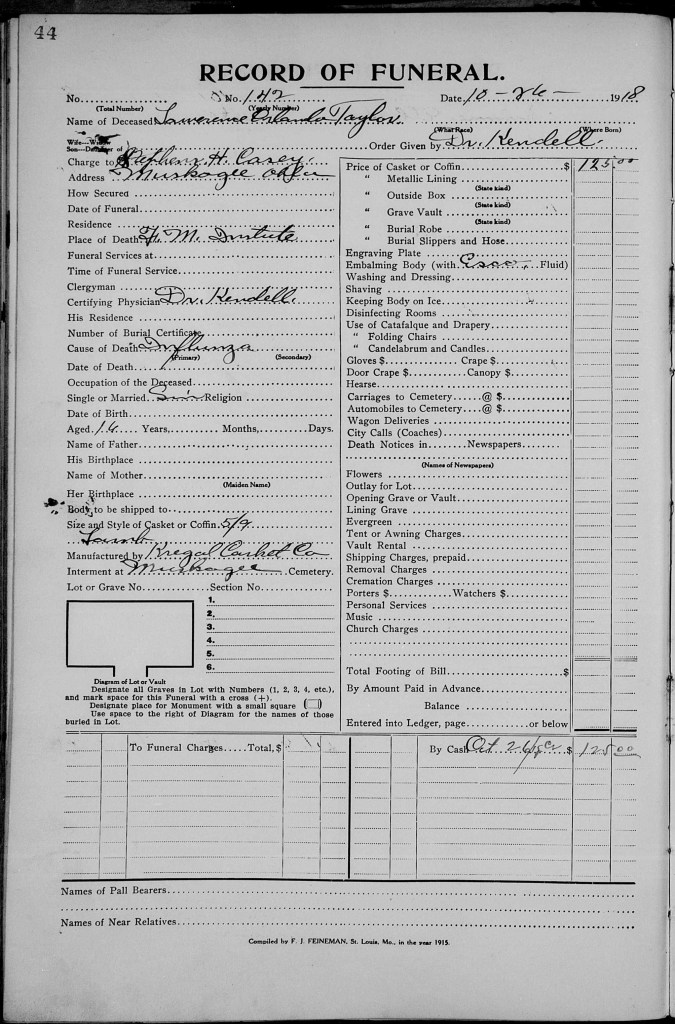 44
RECORD OF FUNERAL.
No.................. No. 142 Date 10-26- 1918
(Total Number) (Yearly Number)
Name of Deceased Lawrence Orlando Taylor
(What Race) (Where Born)
Wife—Widow
Son—Daughter of Order Given by Dr. Kendell.
Charge to Stephens H. Casey. Price of Casket or Coffin $ 125.00
Address Muskogee Okla “ Metallic Lining
(State kind)
How Secured “ Outside Box
(State kind)
Date of Funeral “ Grave Vault
(State kind)
Residence “ Burial Robe
Place of Death F. M. Institute “ Burial Slippers and Hose
Funeral Services at Engraving Plate
Embalming Body (with Esco, Fluid)
Time of Funeral Service Washing and Dressing
Clergyman Shaving
Certifying Physician Dr. Kendell. Keeping Body on Ice
His Residence Disinfecting Rooms
Number of Burial Certificate Use of Catafalque and Drapery
“ Folding Chairs
Cause of Death Influenza “ Candelabrum and Candles
(Primary) (Secondary)
Date of Death Gloves $ Crape $
Door Crape $ Canopy $
Occupation of the Deceased Hearse
Single or Married Sin Religion Carriages to Cemetery @ $
Date of Birth Automobiles to Cemetery @ $
Wagon Deliveries
Aged 16 Years, Months, Days. City Calls (Coaches)
Name of Father Death Notices in Newspapers
His Birthplace
(Names of Newspapers)
Name of Mother Flowers
(Maiden Name)
Her Birthplace Outlay for Lot
Body to be shipped to Opening Grave or Vault
Lining Grave
Size and Style of Casket or Coffin 5/9 Evergreen
Tent or Awning Charges
Vault Rental
Manufactured by Kregal Casket Co Shipping Charges, prepaid
Interment at Muskogee Cemetery. Removal Charges
Cremation Charges
Lot or Grave No. Section No. Porters $ Watchers $
1. Personal Services
2. Music
3. Church Charges
4.
5.
6. Total Footing of Bill $
Diagram of Lot or Vault
Designate all Graves in Lot with Numbers (1, 2, 3, 4, etc.), By Amount Paid in Advance
and mark space for this Funeral with a cross (+).
Designate place for Monument with a small square Balance
Use space to the right of Diagram for the names of those
buried in Lot. Entered into Ledger, page or below
To Funeral Charges Total, $ By Cash Oct 26/18 $ 125.00
Names of Pall Bearers
Names of Near Relatives
Compiled by F. J. FEINEMAN, St. Louis, Mo., in the year 1915.